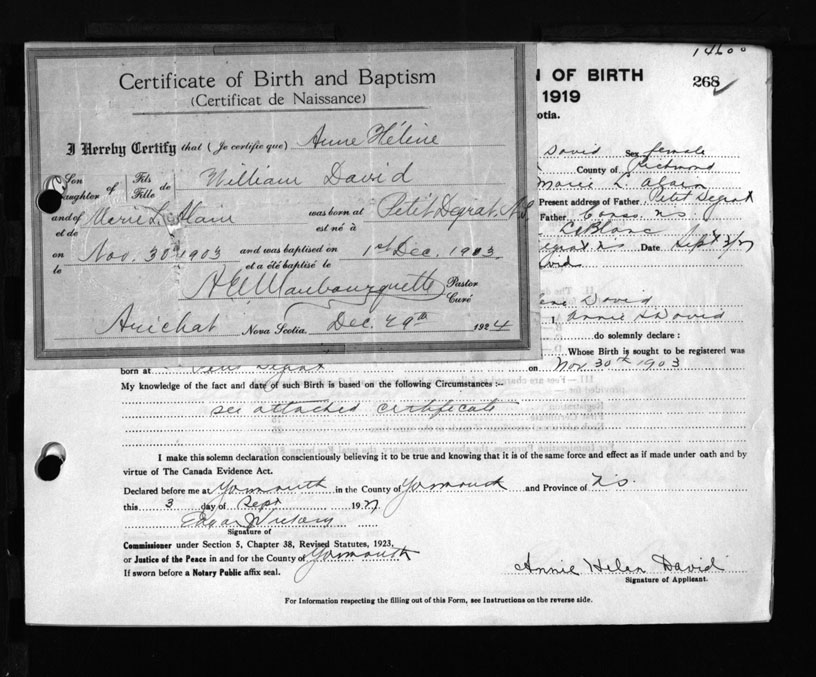 Certificate of Birth and Baptism
(Certificat de Naissance)
I Hereby Certify that (Je certifie que) Anne Hélène
Son Daughter of Fils Fille de William David
and of et de Marie L. Alain was born at est né à Petit Degrat N.S.
on le Nov. 30th 1903 and was baptised on et a été baptisé le 1st Dec. 1903
Pastor Curé
Arichat Nova Scotia, Dec. 29th 1924
1460
N OF BIRTH
268
1919
otia.
David Sex female
County of Richmond
Marie L. Alain
Present address of Father Petit Degrat
Father Canso N.S.
LeBlanc
Degrat N.S. Date Sept 3/27
David
ene David
I, Annie H David
do solemnly declare :
Whose Birth is sought to be registered was
born at Petit Degrat on Nov. 30th 1903
My knowledge of the fact and date of such Birth is based on the following Circumstances :–
see attached certificate
I make this solemn declaration conscientiously believing it to be true and knowing that it is of the same force and effect as if made under oath and by
virtue of The Canada Evidence Act.
Declared before me at Yarmouth in the County of Yarmouth and Province of N.S.
this 3 day of Sept 1927
Edgar
Signature of
Commissioner under Section 5, Chapter 38, Revised Statutes, 1923,
or Justice of the Peace in and for the County of Yarmouth
If sworn before a Notary Public affix seal.
Annie Helen David
Signature of Applicant.
For Information respecting the filling out of this Form, see Instructions on the reverse side.